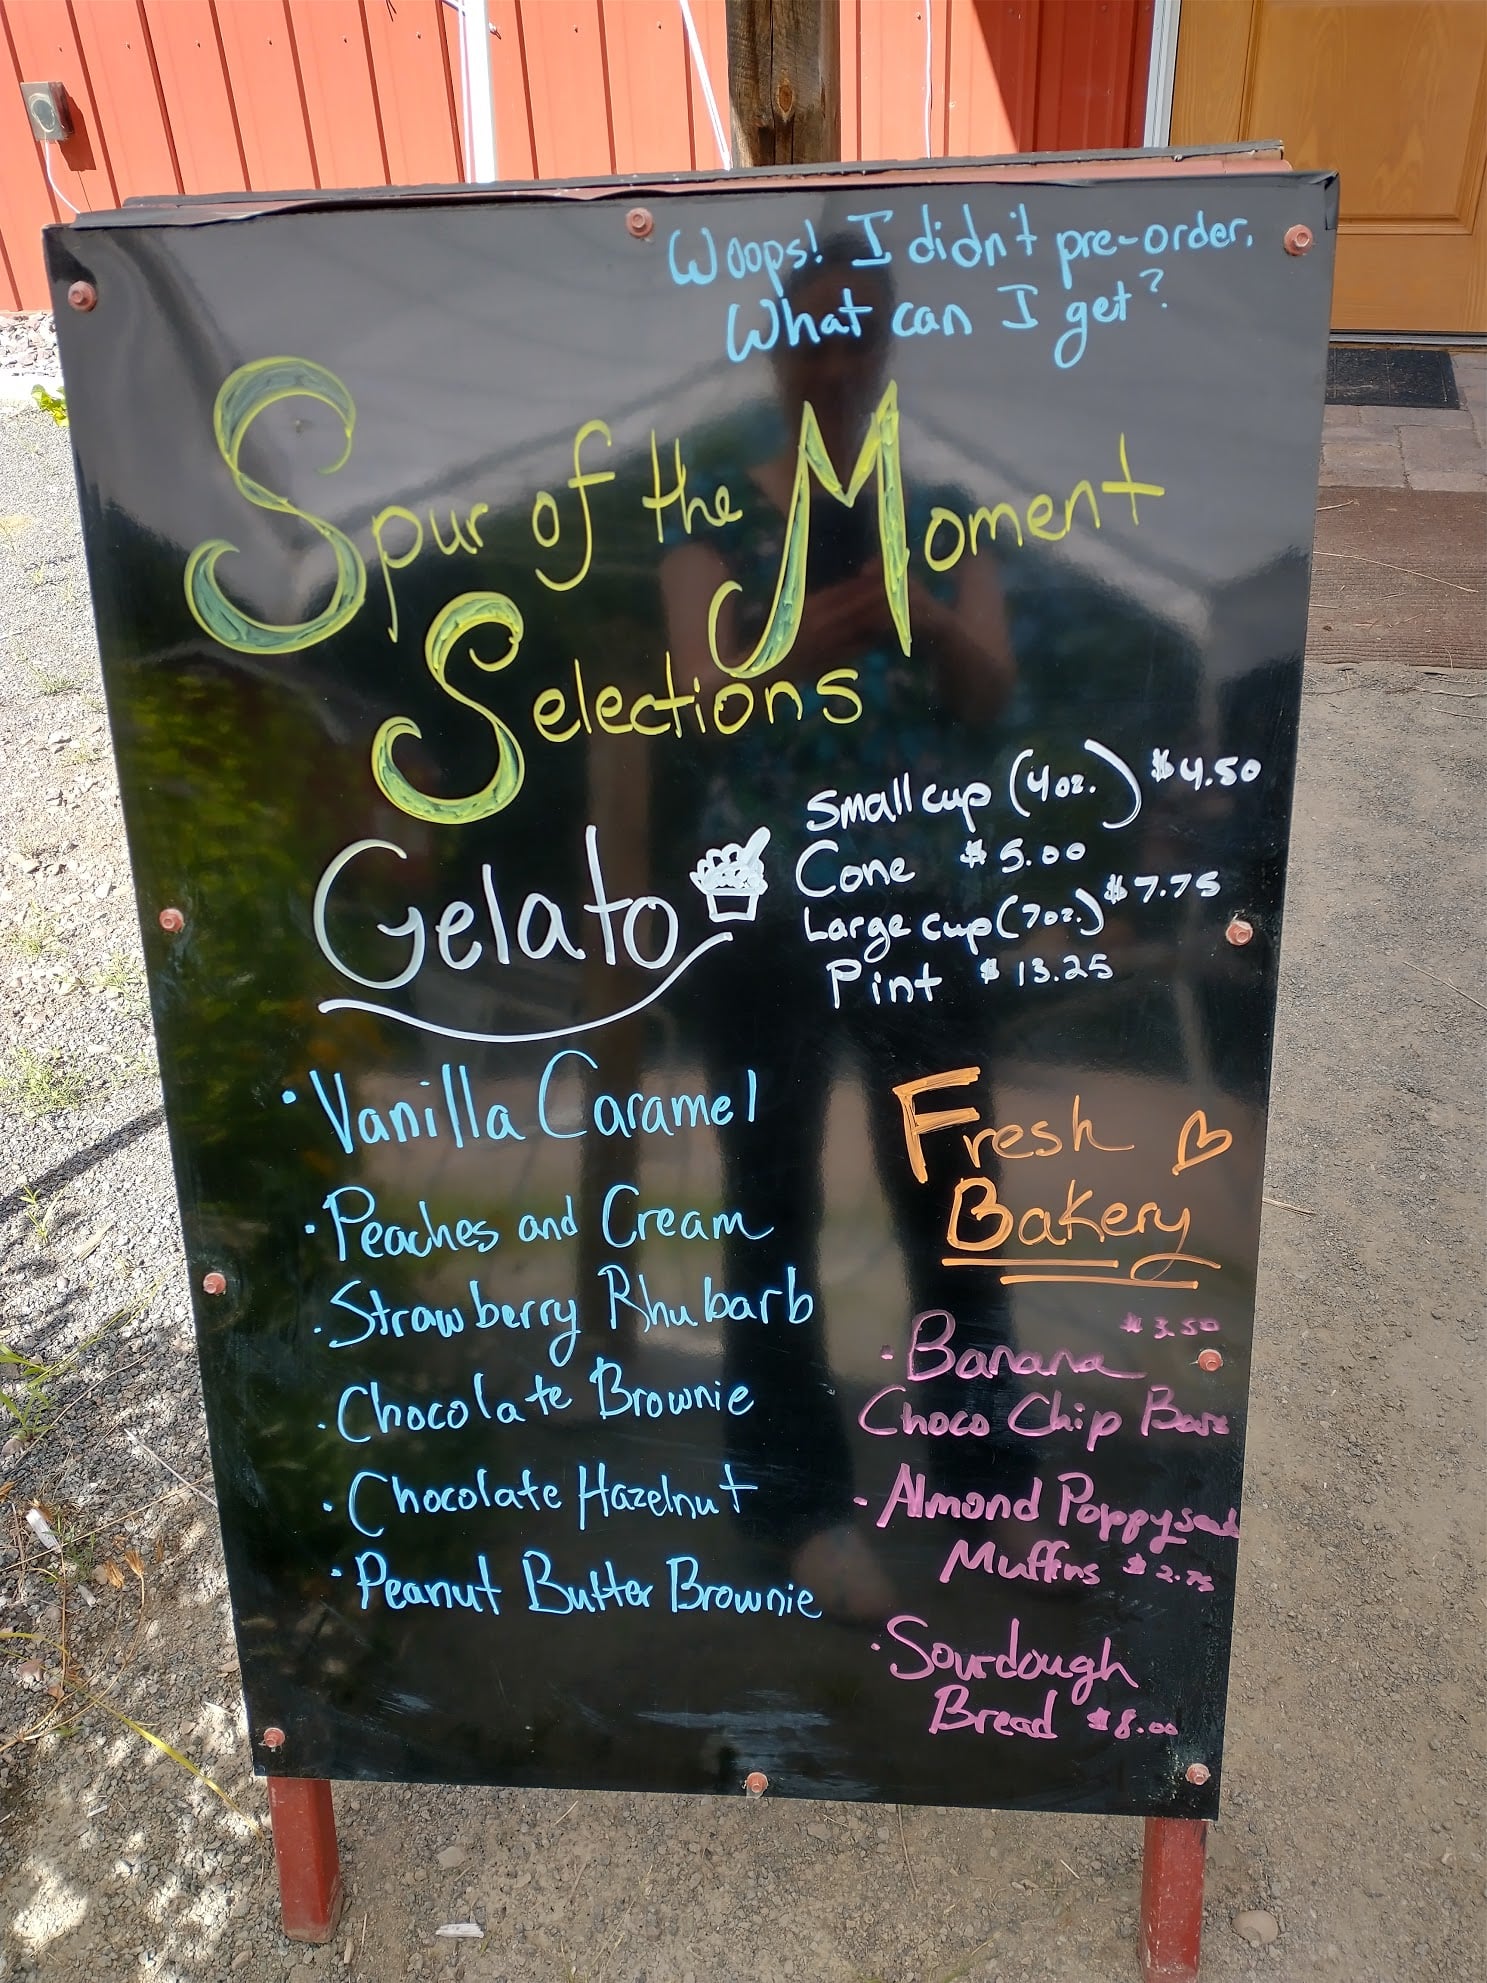 Woops! I didn't pre-order.
What can I get?
Spur of the Moment
Selections
Gelato
Small cup (4oz.) $4.50
Cone $5.00
Large cup (7oz.) $7.75
Pint $13.25
• Vanilla Caramel
• Peaches and Cream
• Strawberry Rhubarb
• Chocolate Brownie
• Chocolate Hazelnut
• Peanut Butter Brownie
Fresh
Bakery
$3.50
• Banana
Choco Chip Bars
• Almond Poppyseed
Muffins $2.75
• Sourdough
Bread $8.00